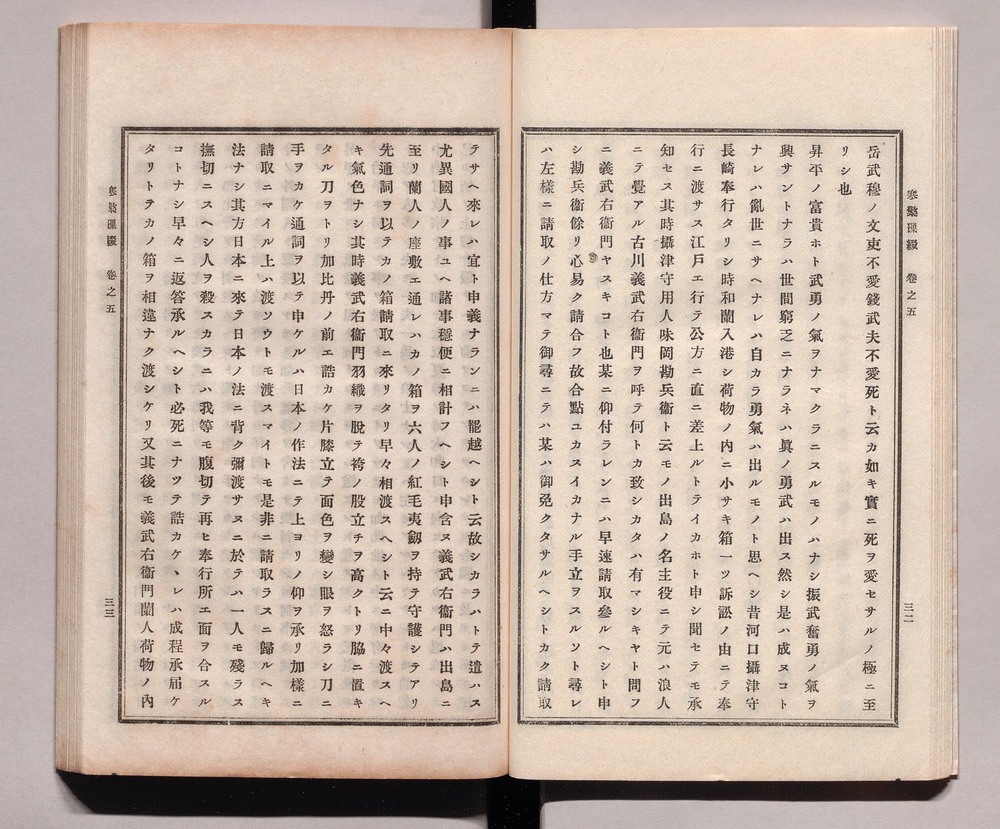 岳武穆ノ文吏不愛錢武夫不愛死ト云カ如キ實ニ死ヲ愛セサルノ極ニ至
リシ也
昇平ノ富貴ホト武勇ノ氣ヲナマクラニスルモノハナシ振武奮勇ノ氣ヲ
興サントナラハ世間窮乏ニナラネハ眞ノ勇武ハ出ス然シ是ハ成ヌコト
ナレハ亂世ニサヘナレハ自カラ勇氣ハ出ルモノト思ヘシ昔河口攝津守
長崎奉行タリシ時和蘭入港シ荷物ノ内ニ小サキ箱一ツ訴訟ノ由ニテ奉
行ニ渡サス江戸エ行テ公方ニ直ニ差上ルトテイカホト申シ聞セテモ承
知セス其時攝津守用人味岡勘兵衞ト云モノ出島ノ名主役ニテ元ハ浪人
ニテ覺アル古川義武右衞門ヲ呼テ何トカ致シカタハ有マシキヤト問フ
ニ義武右衞門ヤスキコト也某ニ仰付ラレンニハ早速請取參ルヘシト申
シ勘兵衞餘リ心易ク請合フ故合點ユカスイカナル手立ヲスルソト尋レ
ハ左樣ニ請取ノ仕方マテ御尋ニテハ某ハ御免クタサルヘシトカク請取
卷之五
三二
テサヘ來レハ宜ト申義ナランニハ罷越ヘシト云故シカラハトテ遣ハス
尤異國人ノ事ユヘ諸事穩便ニ相計フヘシト申含ス義武右衞門ハ出島ニ
至リ蘭人ノ座敷エ通レハカノ箱ヲ六人ノ紅毛夷劔ヲ持テ守護シテアリ
先通詞ヲ以テカノ箱請取ニ來リタリ早々相渡スヘシト云ニ中々渡スヘ
キ氣色ナシ其時義武右衞門羽織ヲ脫テ袴ノ股立チヲ高クトリ脇ニ置キ
タル刀ヲトリ加比丹ノ前エ詰カケ片膝立テ面色ヲ變シ眼ヲ怒ラシ刀ニ
手ヲカケ通詞ヲ以テ申ケルハ日本ノ作法ニテ上ヨリノ仰ヲ承リ加樣ニ
請取ニマイル上ハ渡ソウトモ渡スマイトモ是非ニ請取ラスニ歸ルヘキ
法ナシ其方日本ニ來テ日本ノ法ニ背ク彌渡サヌニ於テハ一人モ殘ラス
撫切ニスヘシ人ヲ殺スカラニハ我等モ腹切テ再ヒ奉行所エ面ヲ合スル
コトナシ早々ニ返答承ルヘシト必死ニナツテ詰カケヽレハ成程承届ケ
タリトテカノ箱ヲ相違ナク渡シケリ又其後モ義武右衞門蘭人荷物ノ內
卷之五
三三